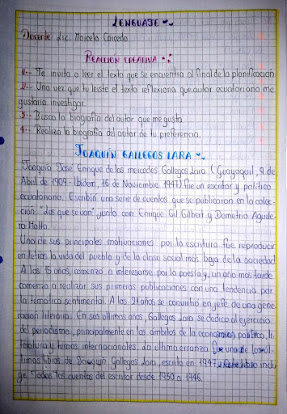 LENGUAJE
Docente Lic. Marcelo Caicedo
REACCIÓN CREATIVA
1.- Te invito a leer el texto que se encuentra al final de la planificación
2.- Una vez que tu leiste el texto reflexiona que autor ecuatoriano me
gustaria investigar
3.- Busca la biografia del autor que me gusta
4.- Realiza la biografia del autor de tu preferencia
JOAQUÍN GALLEGOS LARA
Joaquín José Enrique de las mercedes Gallegos Lara (Guayaquil, 9 de
Abril de 1909 - Ibiden, 16 de Noviembre 1947) fue un escritor y político
ecuatoriano. Escribió una serie de cuentos que se publicaron en la colec-
ción "Los que se van" junto con Enrique Gil Gilbert y Demetrio Aguile-
ra Malta.
Una de sus principales motivaciones por la escritura fue reproducir
en letras la vida del pueblo y de la clase social mas baja de la sociedad
A los 15 años comenzó a interesarse por la poesia y, un año mas tarde
comenzo a realizar sus primeras publicaciones con una tendencia por
la tematica sentimental. A los 21 años se convirtio en jefe de una gene-
racion literaria. En sus ultimos años Gallegos Lara se dedico al ejercicio
de periodismo, principalmente en los ambitos de la economia politica, li-
teratura y temas internacionales. La ultima
de Joaquín Gallegos Lara, escrita en 1947
ye todos los cuentos del escritor desde 1930 a 1946.